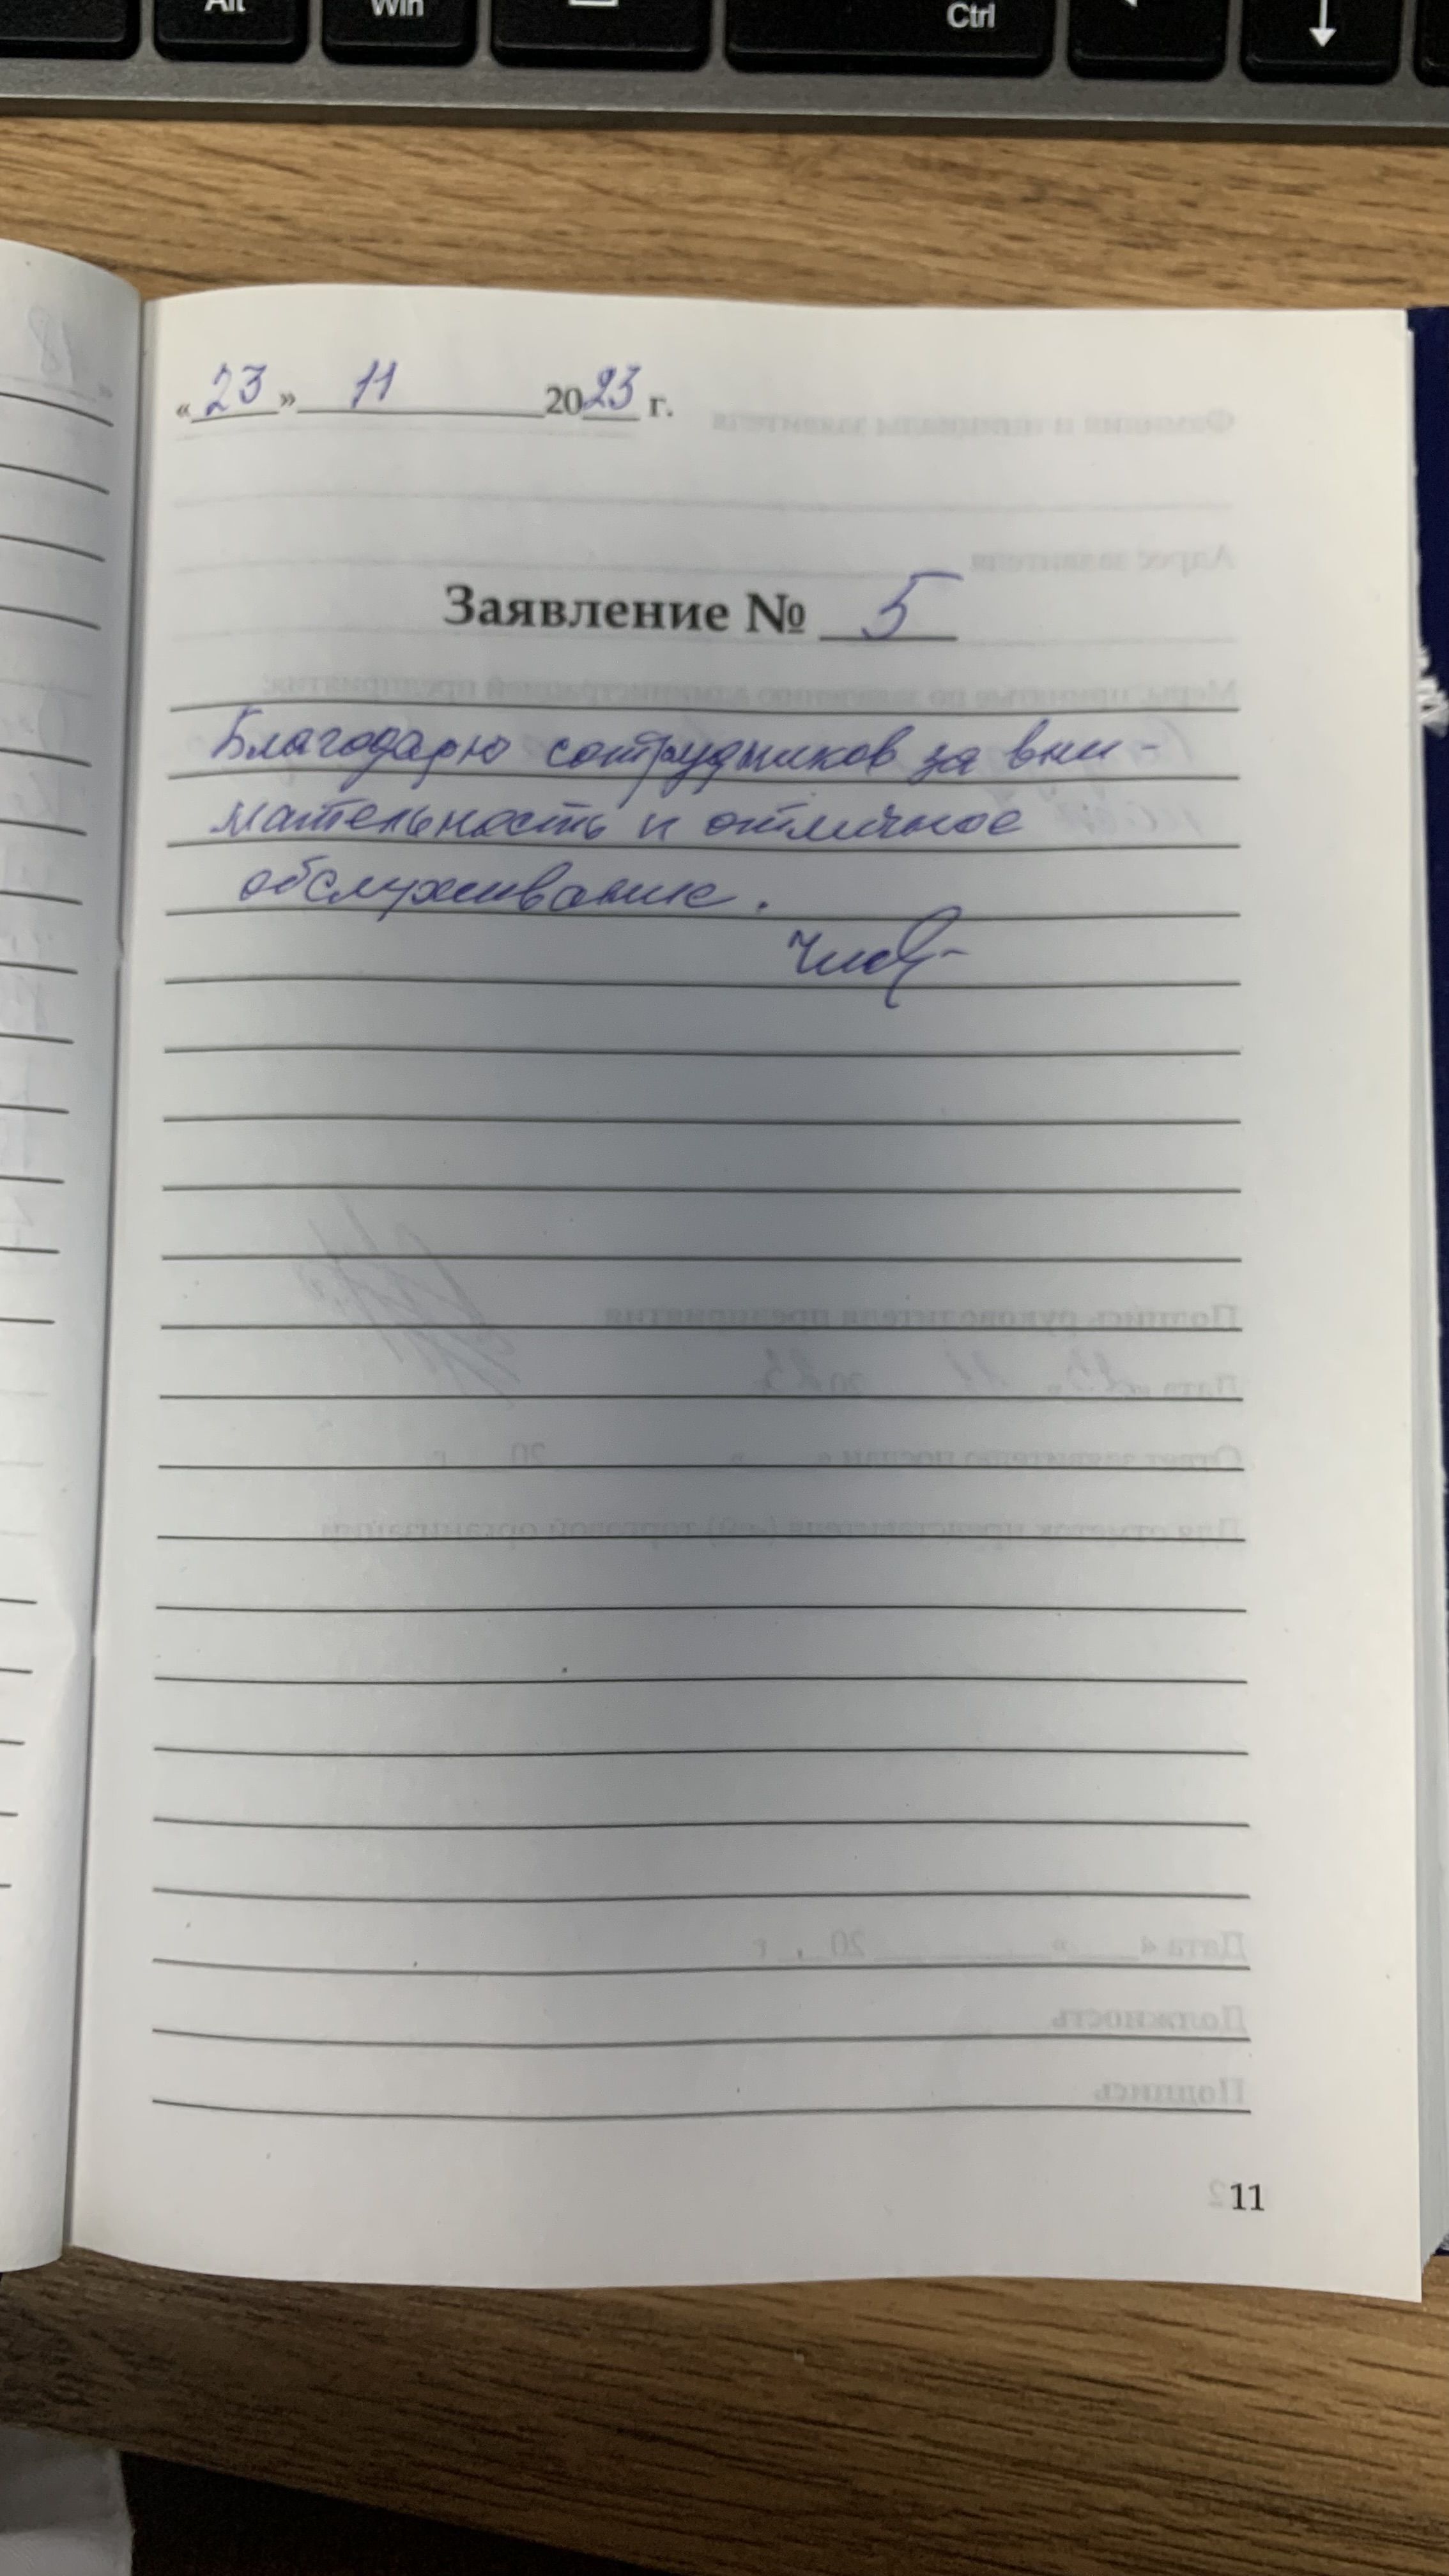 Alt Win Ctrl
«23» 11 2023 г.
Заявление № 5
Благодарю сотрудников за вни-
мательность и отличное
обслуживание.
11